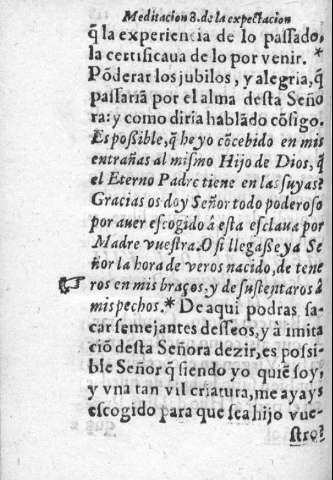 Meditacion 8. de la expectacion
q̃ la experiencia de lo paſſado,
la certificaua de lo por venir. *
Põderar los jubilos, y alegria, q̃
paſſariã por el alma deſta Seño
ra: y como diria hablãdo cõſigo.
Es poßible, q̃ he yo cõcebido en mis
entrañas al miſmo Hijo de Dios, q̃
el Eterno Padre tiene en las ſuyas?
Gracias os doy Señor todo poderoſo
por auer eſcogido á eſta eſclaua por
Madre vueſtra. O ſi llegaße ya Se
ñor la hora de veros nacido, de tene
ros en mis braços, y de ſuſtentaros à
mis pechos. * De aqui podras ſa-
car ſemejantes deſſeos, y à imita
ciõ deſta Señora dezir, es poſsi-
ble Señor q̃ ſiendo yo quiẽ ſoy,
y vna tan vil criatura, me ayays
eſcogido para que ſea hijo vue-
ſtro?